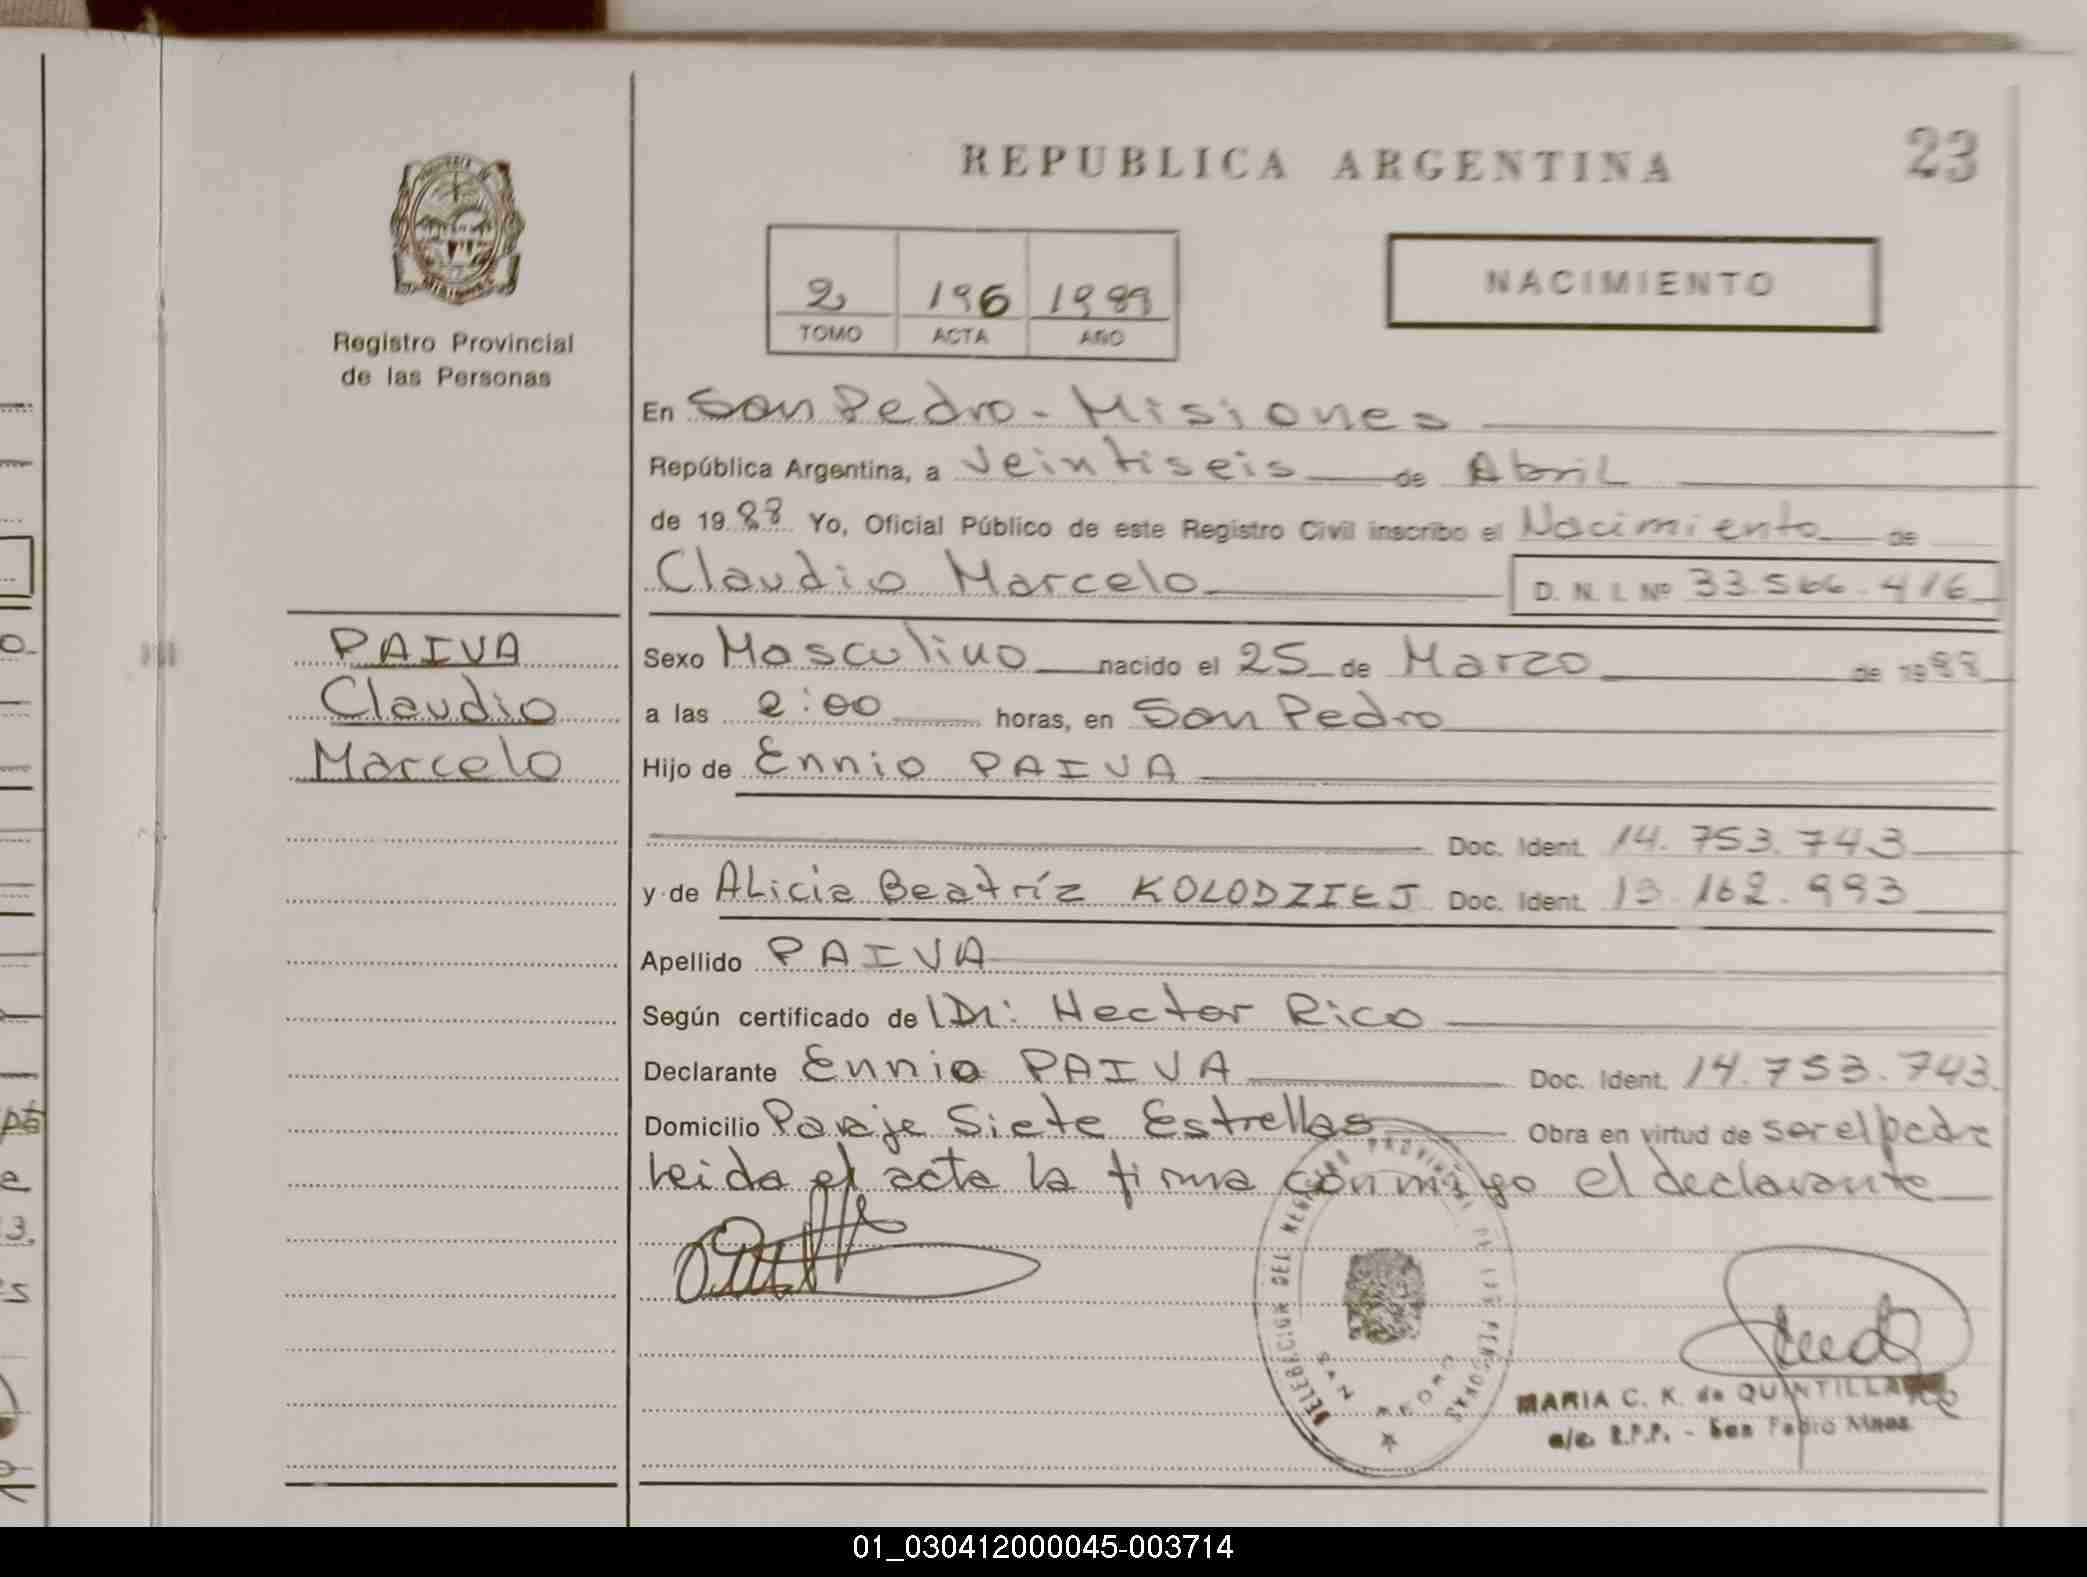 REPUBLICA ARGENTINA
23
2
TOMO
196
ACTA
1988
AÑO
NACIMIENTO
Registro Provincial
de las Personas
En San Pedro - Misiones
República Argentina, a veintiseis de Abril
de 19 88 Yo, Oficial Público de este Registro Civil inscribo el Nacimiento de
Claudio Marcelo D. N. I. Nº 33.566.416
PAIVA
Claudio
Marcelo
Sexo Masculino nacido el 25 de Marzo de 1988
a las 2:00 horas, en San Pedro
Hijo de Ennio PAIVA
Doc. Ident. 14.753.743
y de Alicia Beatríz KOLODZIEJ Doc. Ident. 13.162.993
Apellido PAIVA
Según certificado de Dr: Hector Rico
Declarante Ennio PAIVA Doc. Ident. 14.753.743
Domicilio Paraje Siete Estrellas Obra en virtud de ser el padre
leida el acta la firma conmigo el declarante
DELEGACION DEL REGISTRO PROVINCIAL DE LAS PERSONAS
SAN PEDRO
MARIA C. K. de QUINTILLA
a/c. R.P.P. - San Pedro Mnes
01_030412000045-003714